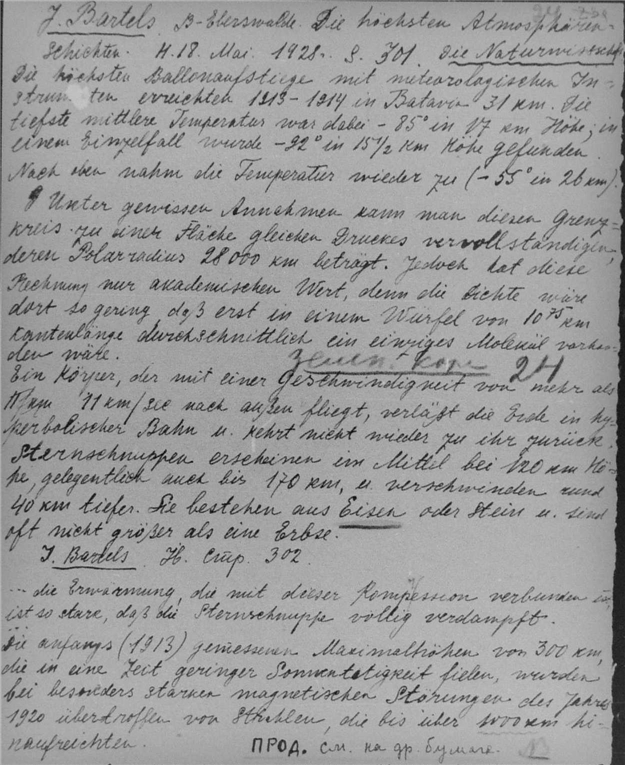 J. Bartels. B-Eberswalde. Die höchsten Atmosphären-
Schichten. H. 18. Mai. 1928. S. 301. Die Naturwissensch
Die höchsten Ballonaufstiege mit meteorologischen In-
strumenten erreichten 1913-1914 in Batavia 31 km. Die
tiefste mittlere Temperatur war dabei - 85° in 17 km Höhe; in
einem Einzelfall wurde - 92° in 15 1/2 km Höhe gefunden.
Nach oben nahm die Temperatur wieder zu (- 55° in 26 km).
Unter gewissen Annahmen kann man diesen Grenz-
kreis zu einer Fläche gleichen Druckes vervollständigen,
deren Polarradius 28 000 km beträgt. Jedoch hat diese
Rechnung nur akademischen Wert, denn die Dichte wäre
dort so gering, daß erst in einem Würfel von 10⁷⁵ km
Kantenlänge durchschnittlich ein einziges Molekül vorhan-
den wäre. 24
Ein Körper, der mit einer Geschwindigkeit von mehr als
11 km/sec nach außen fliegt, verläßt die Erde in hy-
perbolischer Bahn u. kehrt nicht wieder zu ihr zurück.
Sternschnuppen erscheinen im Mittel bei 120 km Hö-
he, gelegentlich auch bei 170 km, u. verschwinden rund
40 km tiefer. Sie bestehen aus Eisen oder Stein u. sind
oft nicht größer als eine Erbse.
J. Bartels. H. Стр. 302.
... die Erwärmung, die mit dieser Kompession verbunden ist,
ist so stark, daß die Sternschnuppe völlig verdampft.
Die anfangs (1913) gemessenen Maximalhöhen von 300 km,
die in eine Zeit geringer Sonnentätigkeit fielen, wurden
bei besonders starken magnetischen Störungen des Jahres
1920 übertroffen von Strahlen, die bis über 1000 km hi-
naufreichten. ПРОД. см. на др. бумаге.